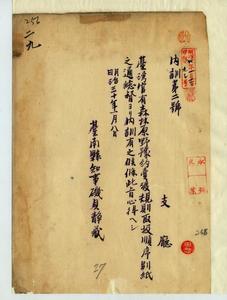 256
二九
内訓第二號
支廳
臺灣官有森林原野豫約賣渡規則取扱順序別紙
之通總督ヨリ内訓有之候條此旨心得ヘシ
明治三十年一月八日
臺南縣知事磯貝靜藏
永久
27